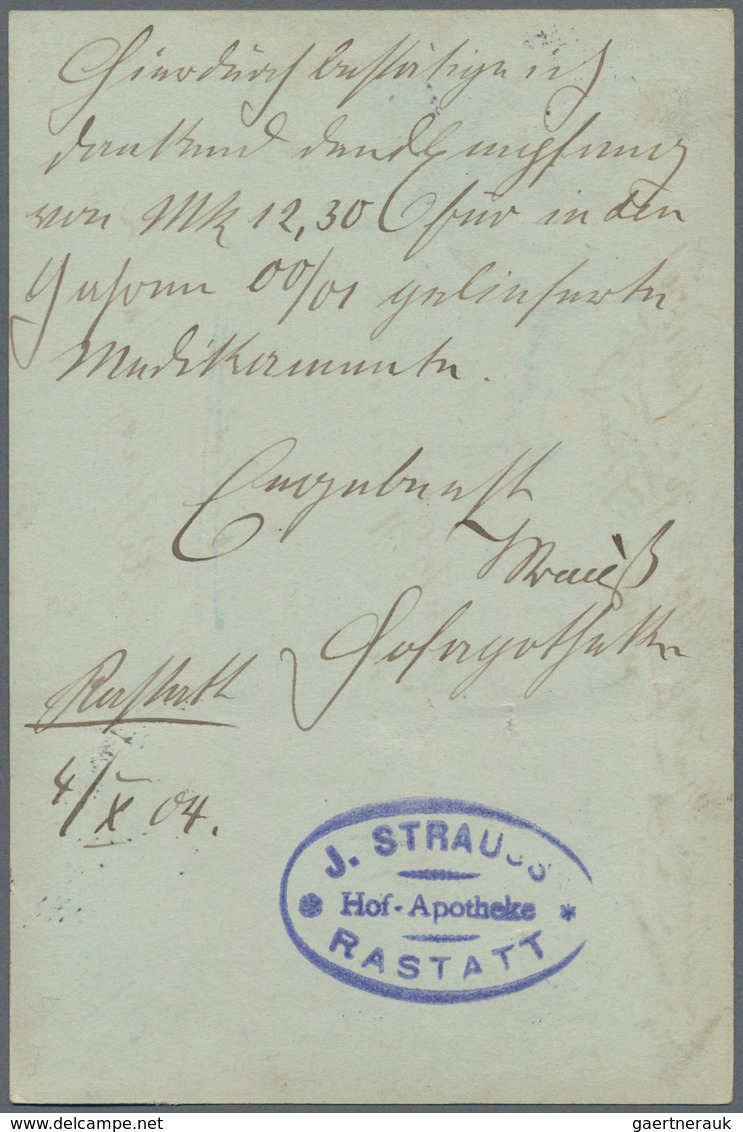 Hierdurch bestätige ich
dankend den Empfang
von Mk 12,30 für in den
Jahren 00/01 gelieferte
Medikamente.
Ergebenst
Strauß
Hofapotheke
Rastatt
4/X 04.
J. STRAUSS
Hof-Apotheke
RASTATT
gaertnerauk